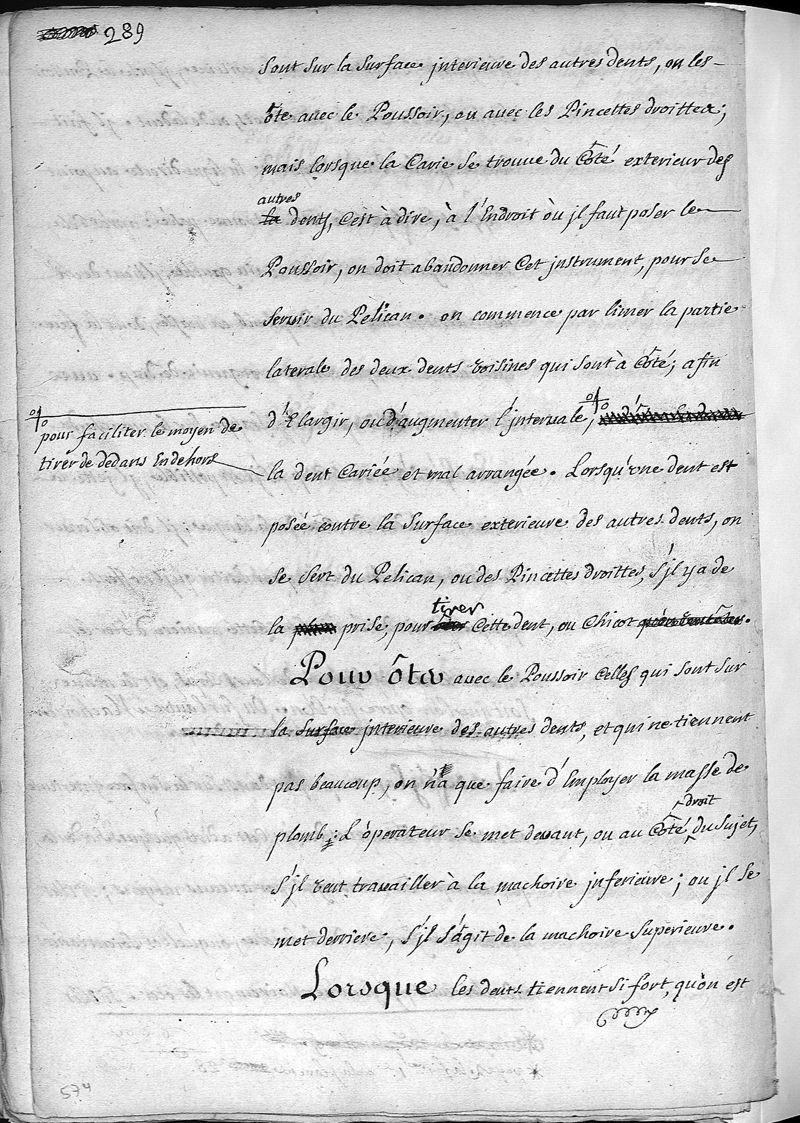 289
sont sur la surface interieure des autres dents, on les
ôte avec le Poussoir, ou avec les Pincettes droittes;
mais lorsque la Carie se trouve du Côté exterieur des
autres
la dents, C'est à dire, à l'Endroit où jl faut poser le
Poussoir, on doit abandonner Cet jnstrument, pour se
servir du Pelican. on commence par limer la partie
laterale des deux dents voisines qui sont à Côté, afin
d'Elargir, ou d'augmenter l'jntervale,
pour faciliter le moyen de
tirer de dedans En dehors
la dent Cariée et mal arrangée. Lorsqu'une dent est
posée contre la surface exterieure des autres dents, on
se sert du Pelican, ou des Pincettes droittes, s'jl y a de
tirer
la plus prise, pour Cette dent, ou Chicot
Pour ôter avec le Poussoir Celles qui sont sur
la surface jnterieure des autres dents, et qui ne tiennent
pas beaucoup, on n'a que faire d'Employer la masse de
droit
plomb: L'operateur se met devant, ou au Côté du sujet,
s'jl veut travailler à la machoire jnferieure; ou jl se
met derriere, s'jl s'agit de la machoire superieure.
Lorsque les dents tiennent si fort, qu'on est
574